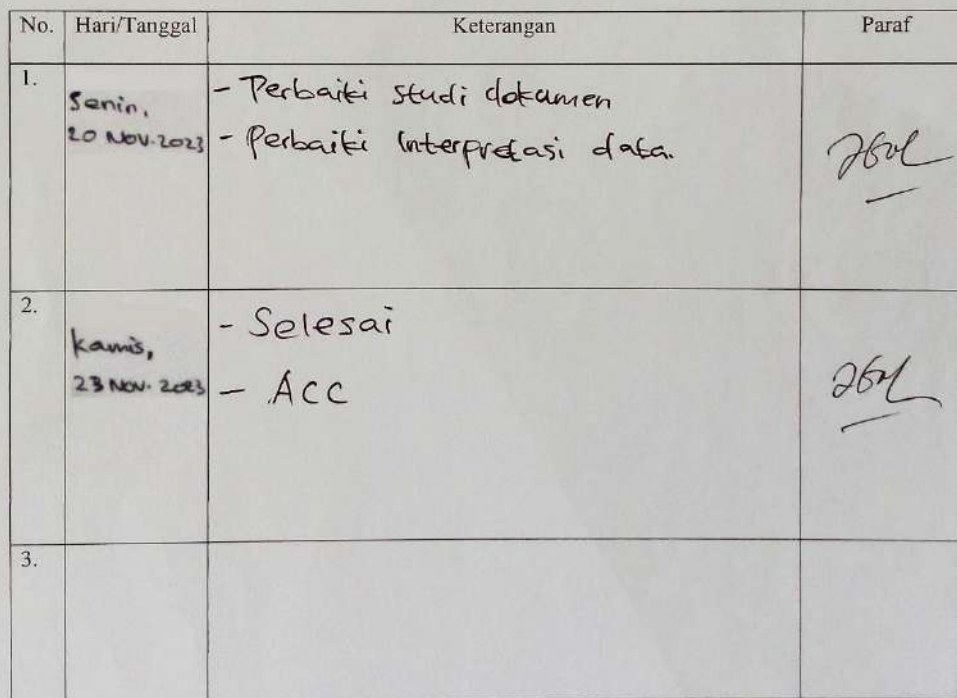 No. Hari/Tanggal Keterangan Paraf
1.
Senin,
20 Nov. 2023
- Perbaiki studi dokumen
- Perbaiki Interpretasi data.
2.
Kamis,
23 Nov. 2023
- Selesai
- ACC
3.